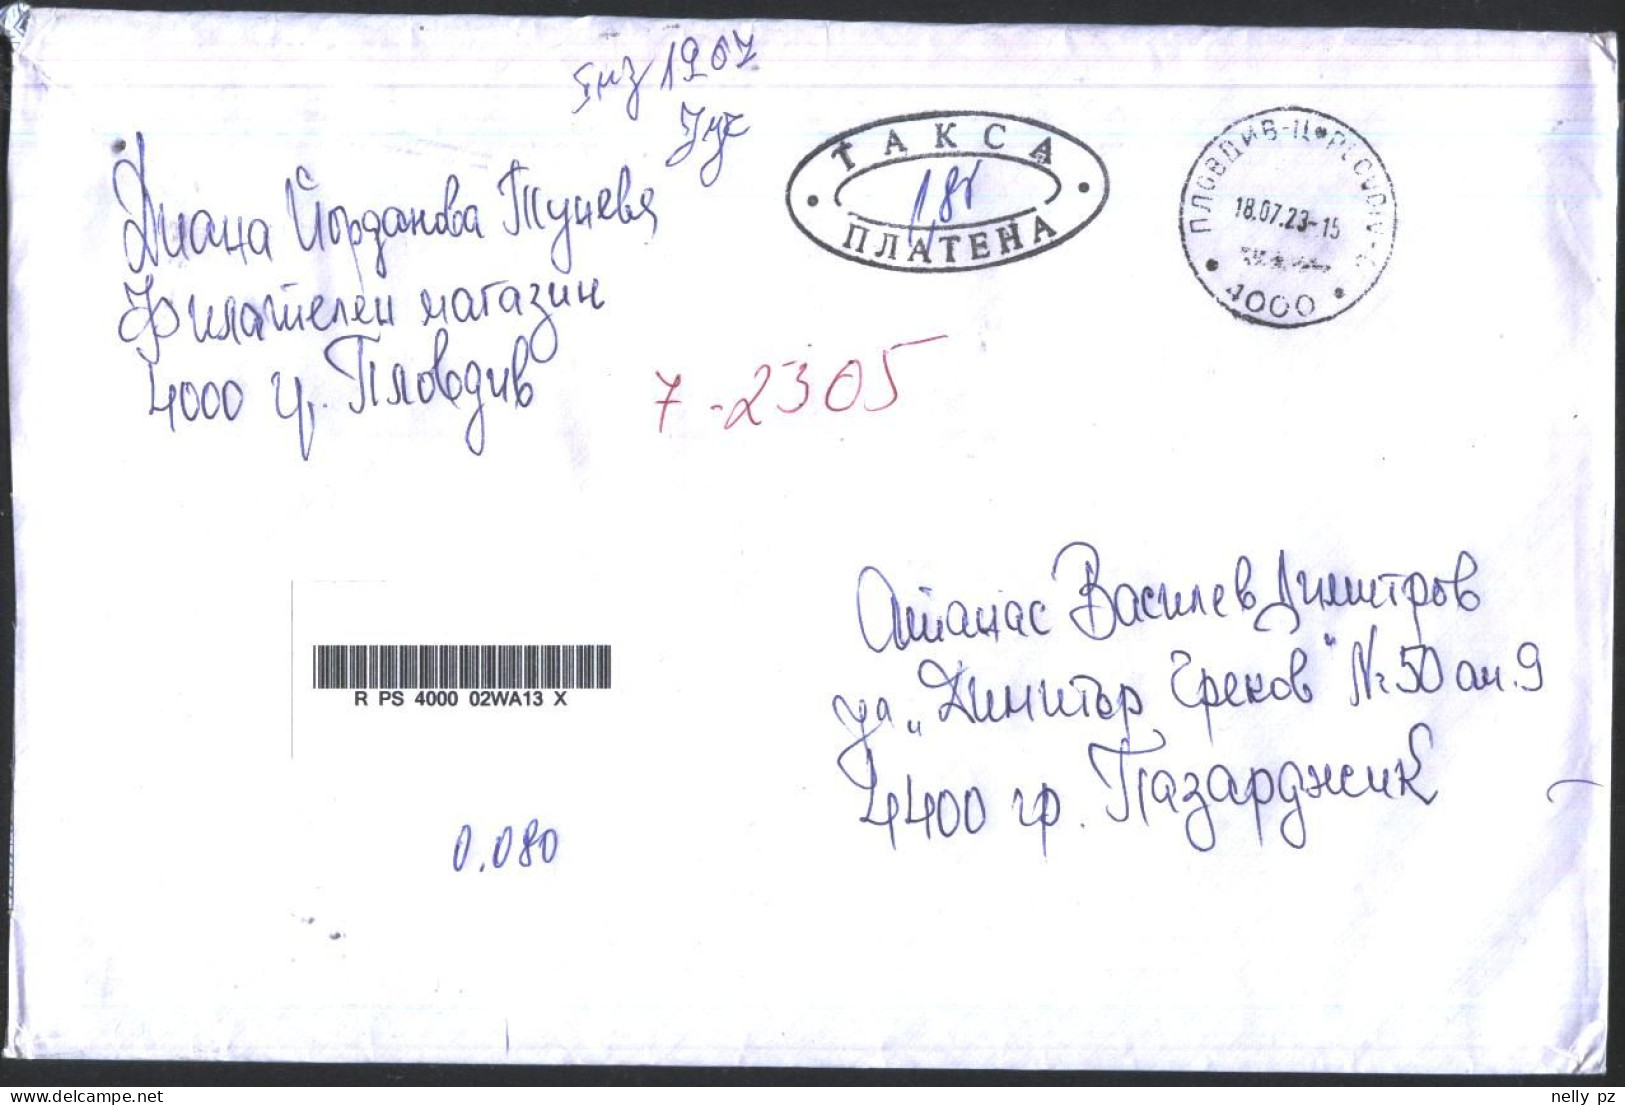 1907
Диана Йорданова Тунева
Филателен магазин
4000 ц. Пловдив
ТАКСА
1,81
ПЛАТЕНА
ПЛОВДИВ-Ц•PLOVDIV-C
18.07.23-15
4000
7-2305
R PS 4000 02WA13 X
0.080
Атанас Василев Димитров
ул. „Димитър Греков" № 50 ап. 9
4400 гр. Пазарджик
delcampe.net
nelly_pz